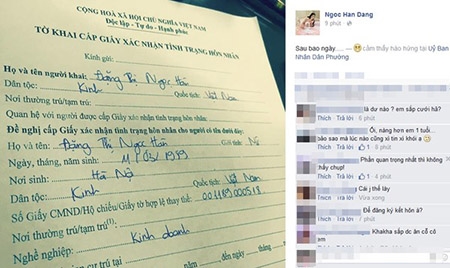 CỘNG HOÀ XÃ HỘI CHỦ NGHĨA VIỆT NAM
Độc lập - Tự do - Hạnh phúc
TỜ KHAI CẤP GIẤY XÁC NHẬN TÌNH TRẠNG HÔN NHÂN
Kính gửi:
Họ và tên người khai: Đặng Thị Ngọc Hân
Dân tộc: Kinh Quốc tịch: Việt Nam
Nơi thường trú/tạm trú:
Quan hệ với người được cấp Giấy xác nhận tình trạng hôn nhân:
Đề nghị cấp Giấy xác nhận tình trạng hôn nhân cho người có tên dưới đây:
Họ và tên: Đặng Thị Ngọc Hân Giới tính: Nữ
Ngày, tháng, năm sinh: 11/03/1989
Nơi sinh: Hà Nội
Dân tộc: Kinh Quốc tịch: Việt Nam
Số Giấy CMND/Hộ chiếu/Giấy tờ hợp lệ thay thế: 001189000518
Nơi thường trú/tạm trú(1):
Nghề nghiệp: Kinh doanh
cư trú tại từ ngày tháng
Ngoc Han Dang
9 phút
Sau bao ngày..... — cảm thấy hào hứng tại Uỷ Ban Nhân Dân Phường
là dư nào ? em sắp cưới hả?
Thích · Trả lời · 6 phút
Ôi, nàng hơn em 1 tuổi... bao năm sau rồi cũng xì tin xỉ khói ạ
Thích · Trả lời · 1 · 8 phút
Phần quan trọng nhất thì không thấy chụp!
Thích · Trả lời · 1 · 8 phút
Cái j thế lày
Thích · Trả lời · Vừa xong
Để đăng ký kết hôn á?
Thích · Trả lời · 4 phút
Khakha sắp dc ăn cỗ cô em